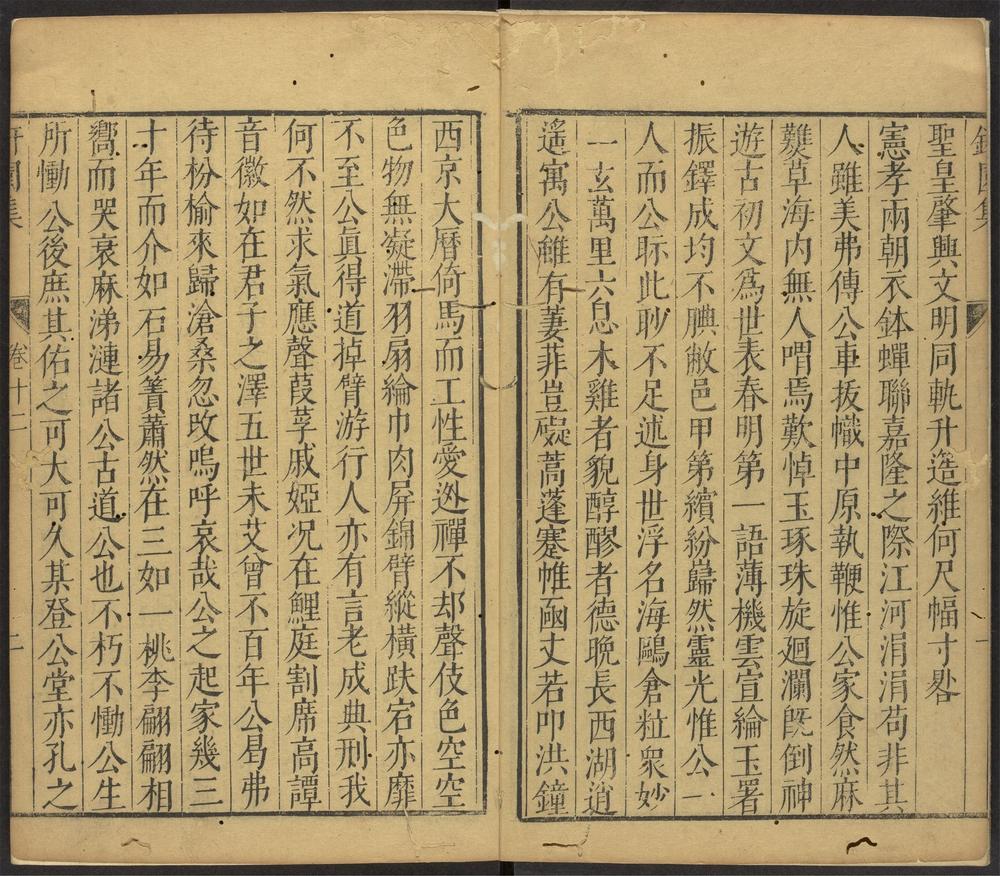 聖皇肇興文明同軌升造維何尺幅寸晷
憲孝兩朝衣鉢蟬聯嘉隆之際江河涓涓苟非其
人雖美弗傳公車拔幟中原執鞭惟公家食然麻
爇草海内無人喟焉歎悼玉琢珠旋廻瀾既倒神
遊古初文爲世表春明第一語薄機雲宣綸玉署
振鐸成均不腆敝邑甲第繽紛巋然靈光惟公一
人而公眎此眇不足述身世浮名海鷗倉粒衆妙
一玄萬里六息木雞者貌醇醪者德晚長西湖逍
遙寓公雖有萋菲豈礙蒿蓬蹇帷凾丈若叩洪鐘
西京大曆倚馬而工性愛迯禪不却聲伎色空空
色物無凝滯羽扇綸巾肉屏錦臂縱橫跌宕亦靡
不至公眞得道掉臂游行人亦有言老成典刑我
何不然求氣應聲葭莩戚婭况在鯉庭割席高譚
音徽如在君子之澤五世未艾曾不百年公曷弗
待枌榆來歸滄桑忽改嗚呼哀哉公之起家幾三
十年而介如石易簀蕭然在三如一桃李翩翩相
嚮而哭衰麻涕漣諸公古道公也不朽不慟公生
所慟公後庶其佑之可大可久某登公堂亦孔之
卷十二
二